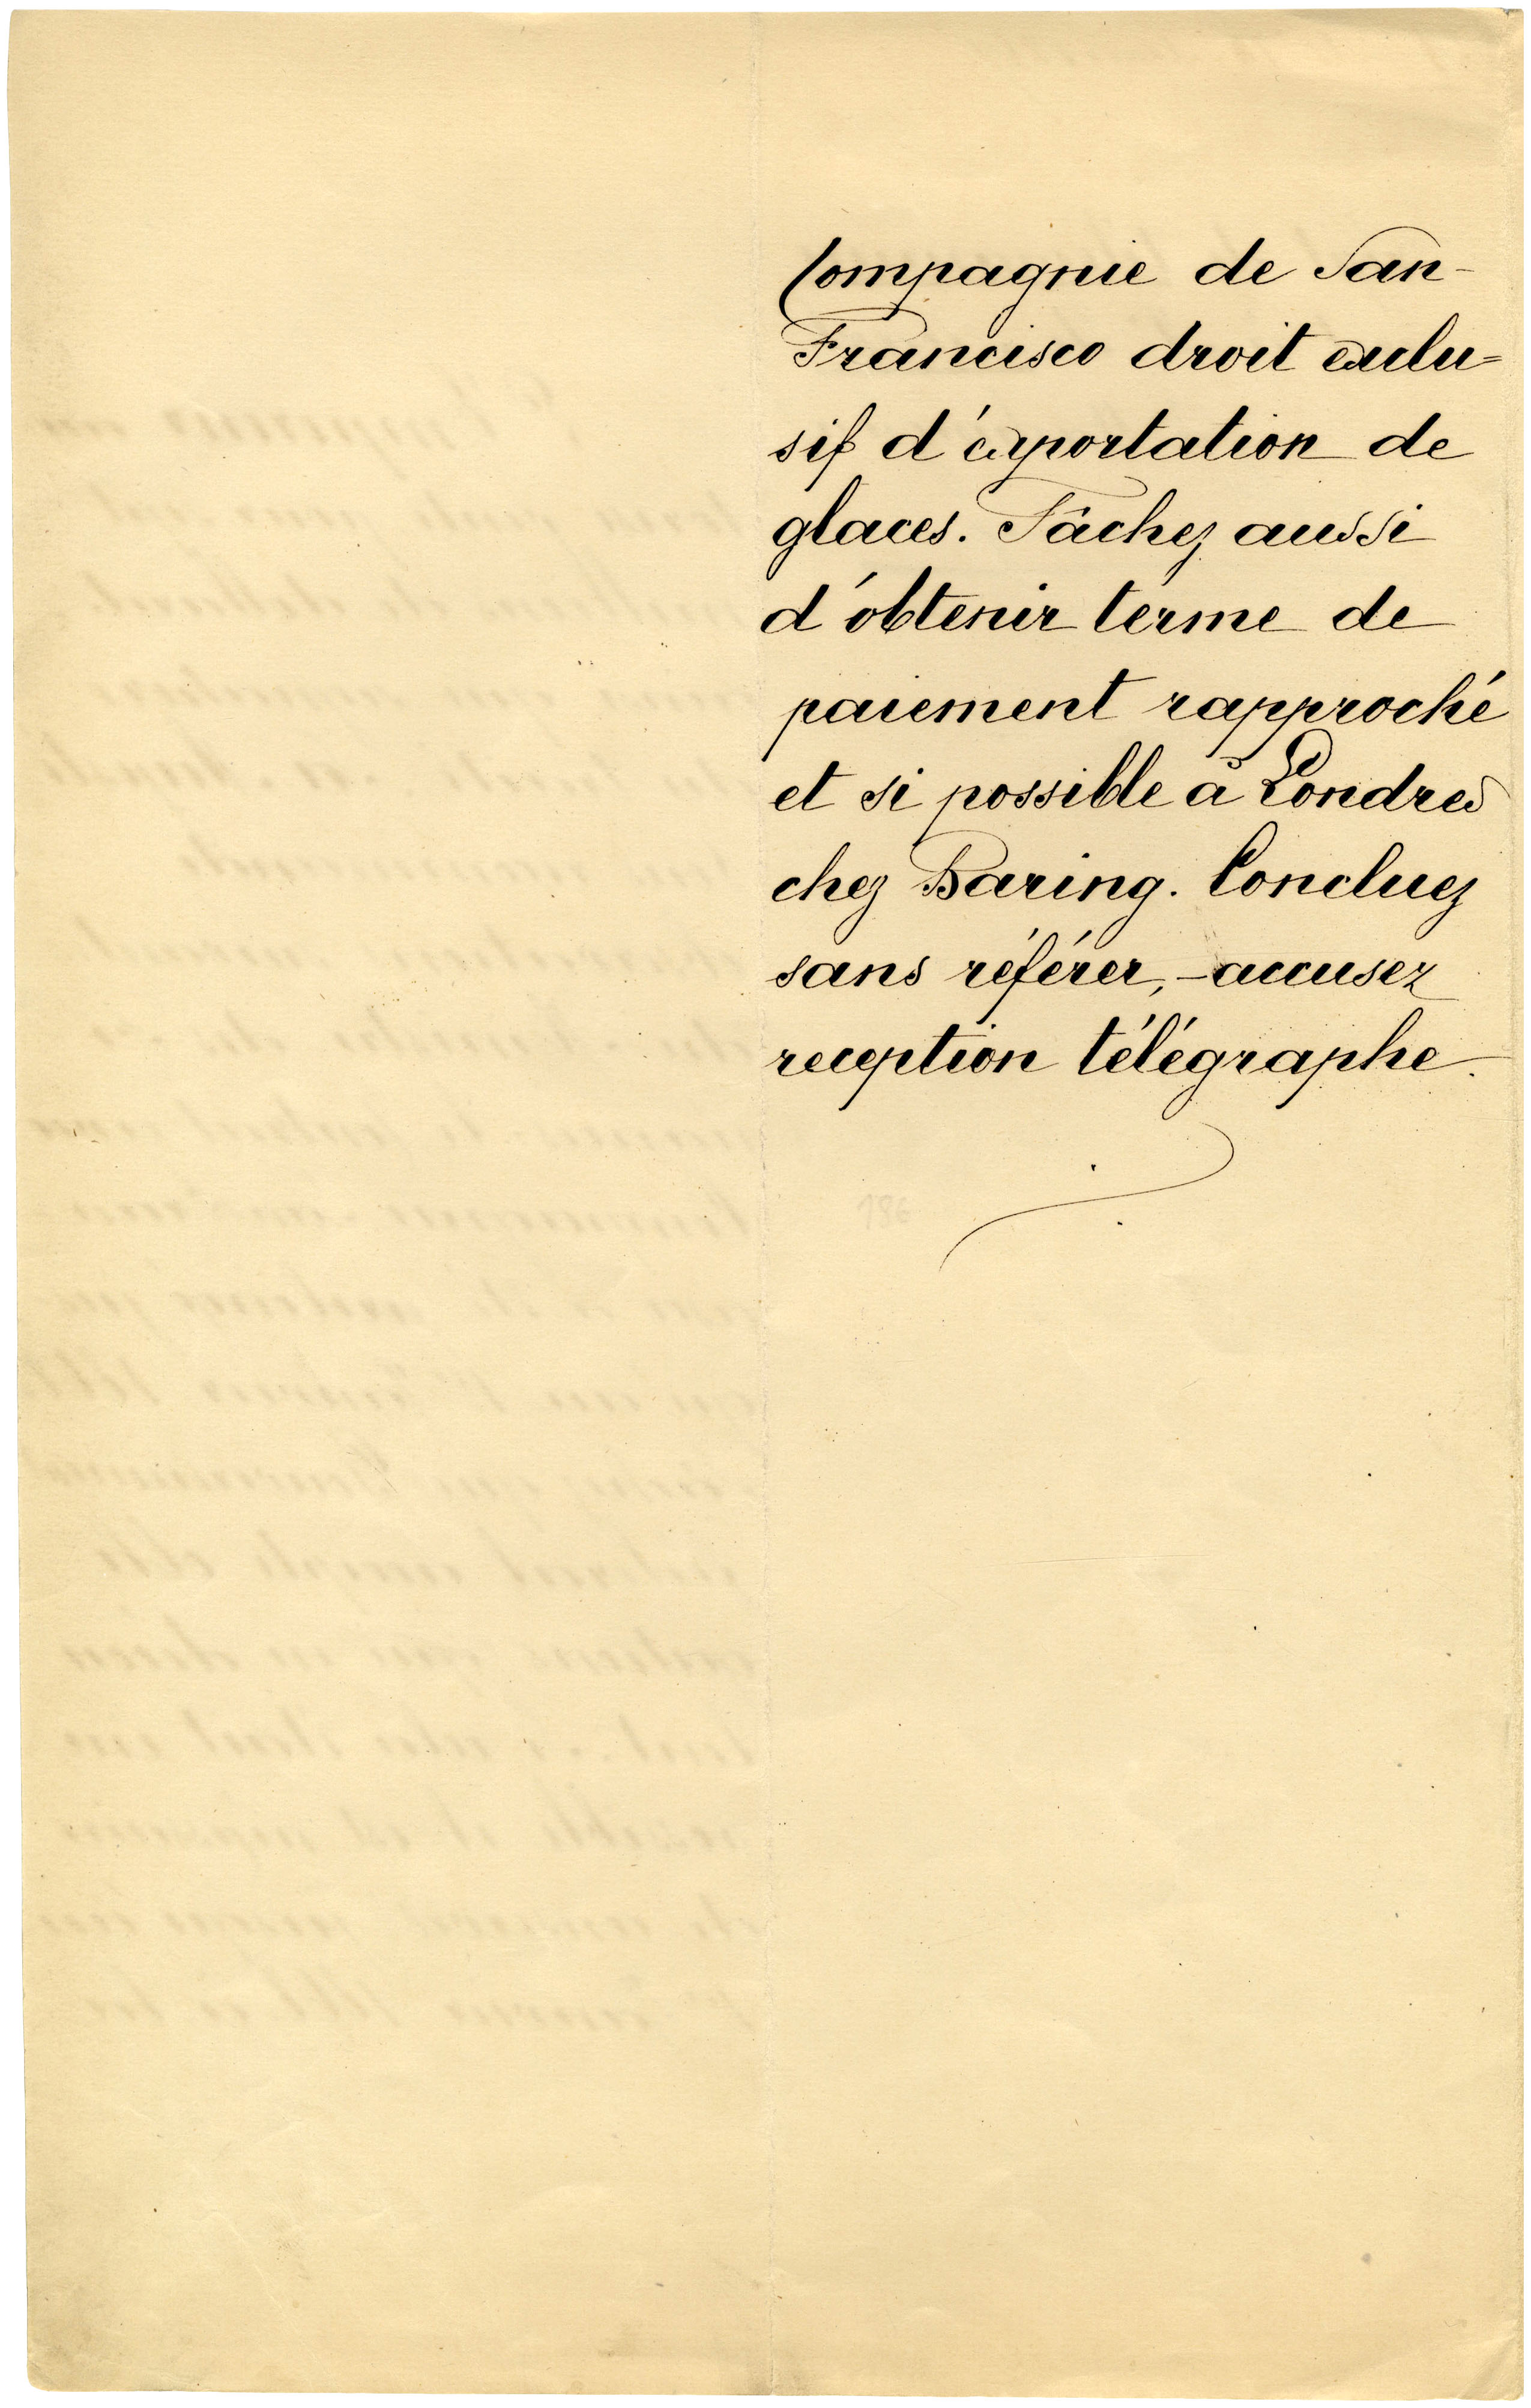 Compagnie de San-
Francisco droit exclu=
sif d'exportation de
glaces. Tâchez aussi
d'obtenir terme de
paiement rapproché
et si possible à Londres
chez Baring. Concluez
sans référer, – accusez
reception télégraphe.